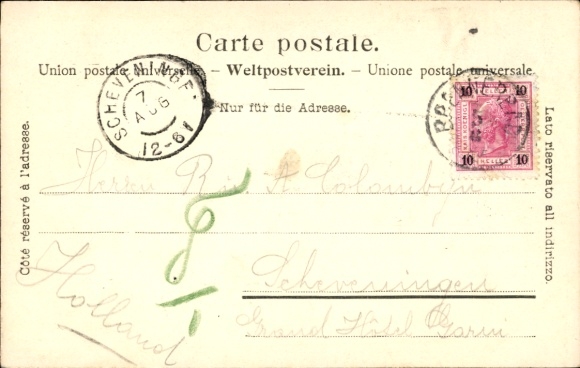 Carte postale.
Union postale universelle. – Weltpostverein. – Unione postale universale.
Nur für die Adresse.
Côté réservé à l'adresse.
Lato riservato all indirizzo.
SCHEVENINGE
7
AUG
12-6
10 10
10 10
HELLER
Herrn A. Colombijn
Scheveningen
Grand Hôtel Garni
Holland